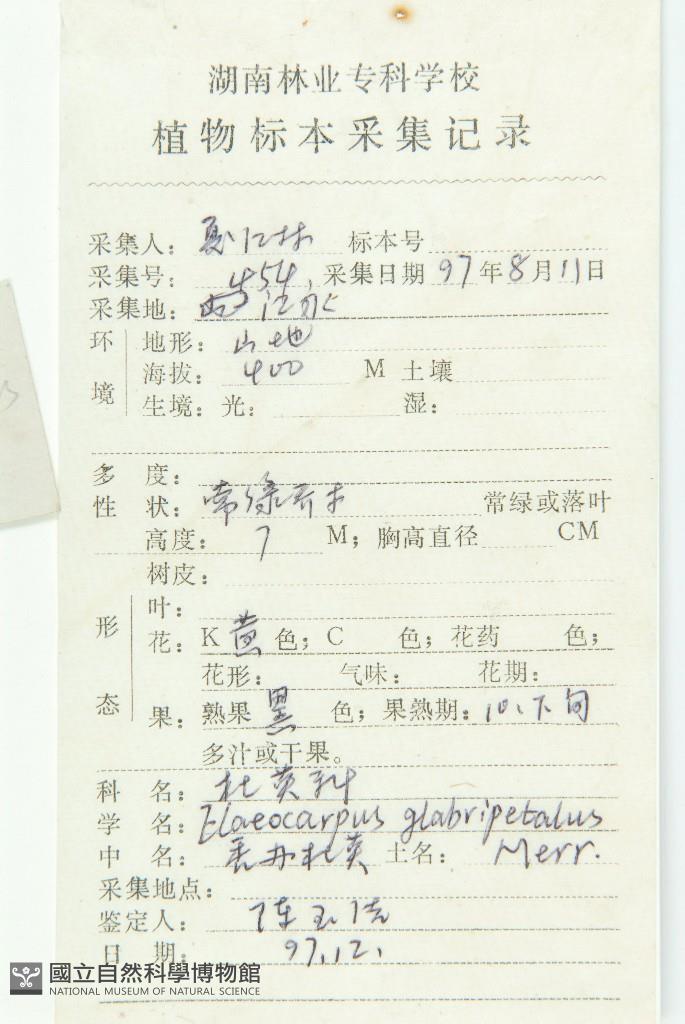 湖南林业专科学校
植物标本采集记录
采集人： 标本号
采集号： 454 采集日期 97 年 8 月 11 日
采集地：
环境
地形： 山地
海拔： 400 M 土壤
生境：光： 湿：
多度：
性状： 常绿乔木 常绿或落叶
高度： 7 M；胸高直径 CM
形态
树皮：
叶：
花： K 黄 色； C 色；花药 色；
花形： 气味： 花期：
果： 熟果 黑 色；果熟期： 10、下旬
多汁或干果。
科名： 杜英科
学名： Elaeocarpus glabripetalus
中名： 秃瓣杜英 土名： Merr.
采集地点：
鉴定人：
日期： 97.12.
國立自然科學博物館
NATIONAL MUSEUM OF NATURAL SCIENCE